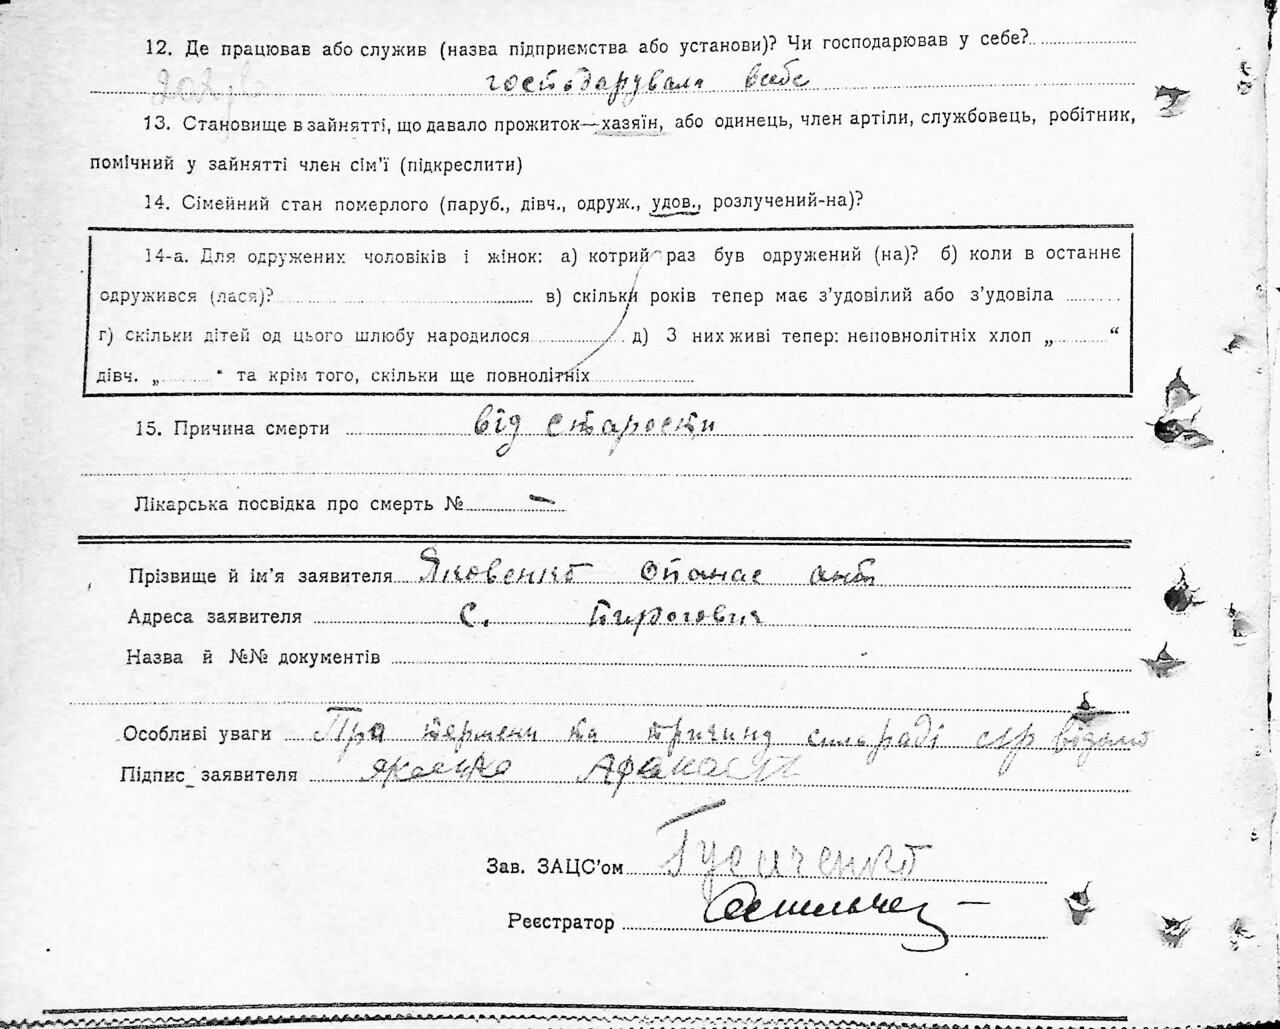 12. Де працював або служив (назва підприємства або установи)? Чи господарював у себе?
господарувала в себе
13. Становище в зайнятті, що давало прожиток—хазяїн, або одинець, член артіли, службовець, робітник,
помічний у зайнятті член сім'ї (підкреслити)
14. Сімейний стан померлого (паруб., дівч., одруж., удов., розлучений-на)?
14-а. Для одружених чоловіків і жінок: а) котрий раз був одружений (на)? б) коли в останнє
одружився (лася)? в) скільки років тепер має з'удовілий або з'удовіла
г) скільки дітей од цього шлюбу народилося д) З них живі тепер: неповнолітніх хлоп „ “
дівч. „ “ та крім того, скільки ще повнолітніх
15. Причина смерти від старости
Лікарська посвідка про смерть № —
Прізвище й ім'я заявителя Яковенко Опанас Ант
Адреса заявителя с. Пирогович
Назва й №№ документів
Особливі уваги Про термени та причину сільраді
Підпис заявителя Афанасий
Зав. ЗАЦС'ом Гусиченко
Реєстратор